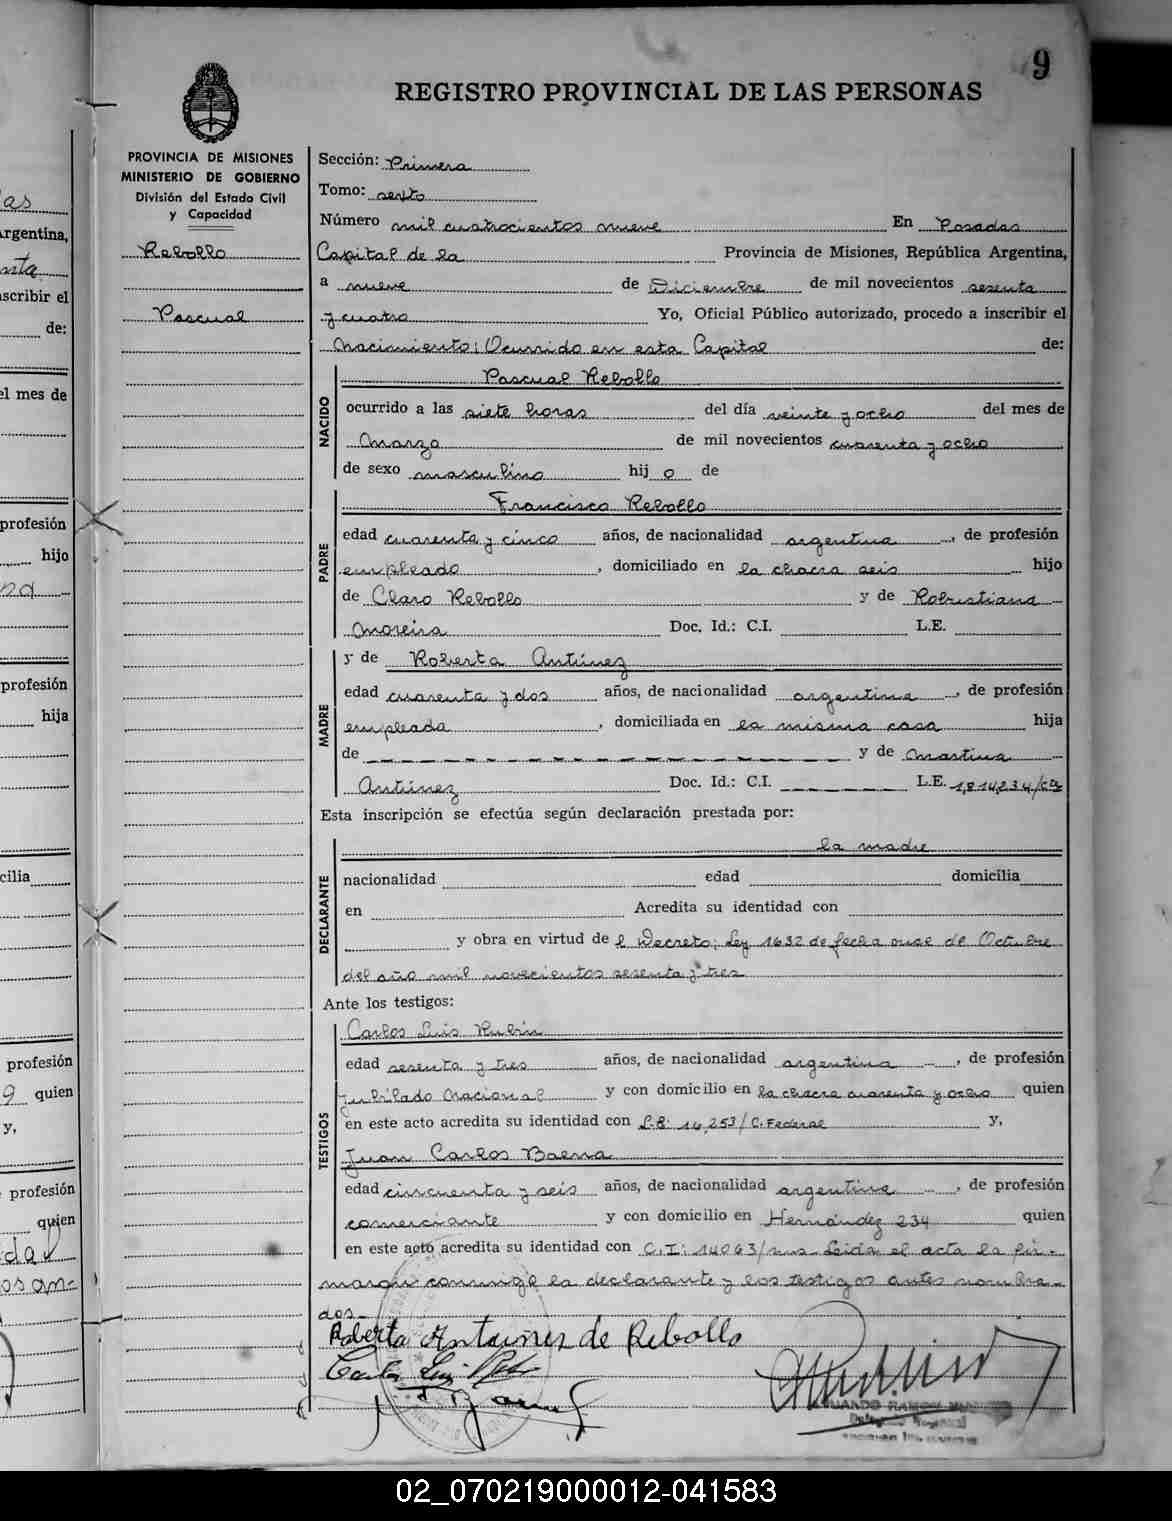 9
REGISTRO PROVINCIAL DE LAS PERSONAS
PROVINCIA DE MISIONES
MINISTERIO DE GOBIERNO
División del Estado Civil
y Capacidad
Rebollo
Pascual
Sección: Primera
Tomo: sexto
Número mil cuatrocientos nueve En Posadas
Capital de la Provincia de Misiones, República Argentina,
a nueve de Diciembre de mil novecientos sesenta
y cuatro Yo, Oficial Público autorizado, procedo a inscribir el
Nacimiento: Ocurrido en esta Capital de:
NACIDO
Pascual Rebollo
ocurrido a las siete horas del día veinte y ocho del mes de
Marzo de mil novecientos cuarenta y ocho
de sexo masculino hij o de
PADRE
Francisco Rebollo
edad cuarenta y cinco años, de nacionalidad argentina, de profesión
empleado, domiciliado en la chacra seis hijo
de Claro Rebollo y de Robustiana
Moreira Doc. Id.: C.I. L.E.
MADRE
y de Roberta Antúnez
edad cuarenta y dos años, de nacionalidad argentina, de profesión
empleada, domiciliada en la misma casa hija
de y de Martina
Antúnez Doc. Id.: C.I. L.E. 1.814.234/
Esta inscripción se efectúa según declaración prestada por:
DECLARANTE
la madre
nacionalidad edad domicilia
en Acredita su identidad con
y obra en virtud de l Decreto; Ley 1632 de fecha once de Octubre
del año mil novecientos sesenta y tres
Ante los testigos:
TESTIGOS
Carlos Luis Rubin
edad sesenta y tres años, de nacionalidad argentina, de profesión
jubilado Nacional y con domicilio en la chacra cuarenta y ocho quien
en este acto acredita su identidad con L.E: 14,253/C. Federal y,
Juan Carlos Baena
edad cincuenta y seis años, de nacionalidad argentina, de profesión
comerciante y con domicilio en Hernández 234 quien
en este acto acredita su identidad con C.I: 14063/mis. Leida el acta la fir-
man conmigo la declarante y los testigos antes nombra-
dos.-
Roberta Antunes de Rebollo
as
rgentina,
nta
nscribir el
de:
el mes de
profesión
hijo
profesión
hija
cilia
profesión
9 quien
y,
profesión
quien
02_070219000012-041583